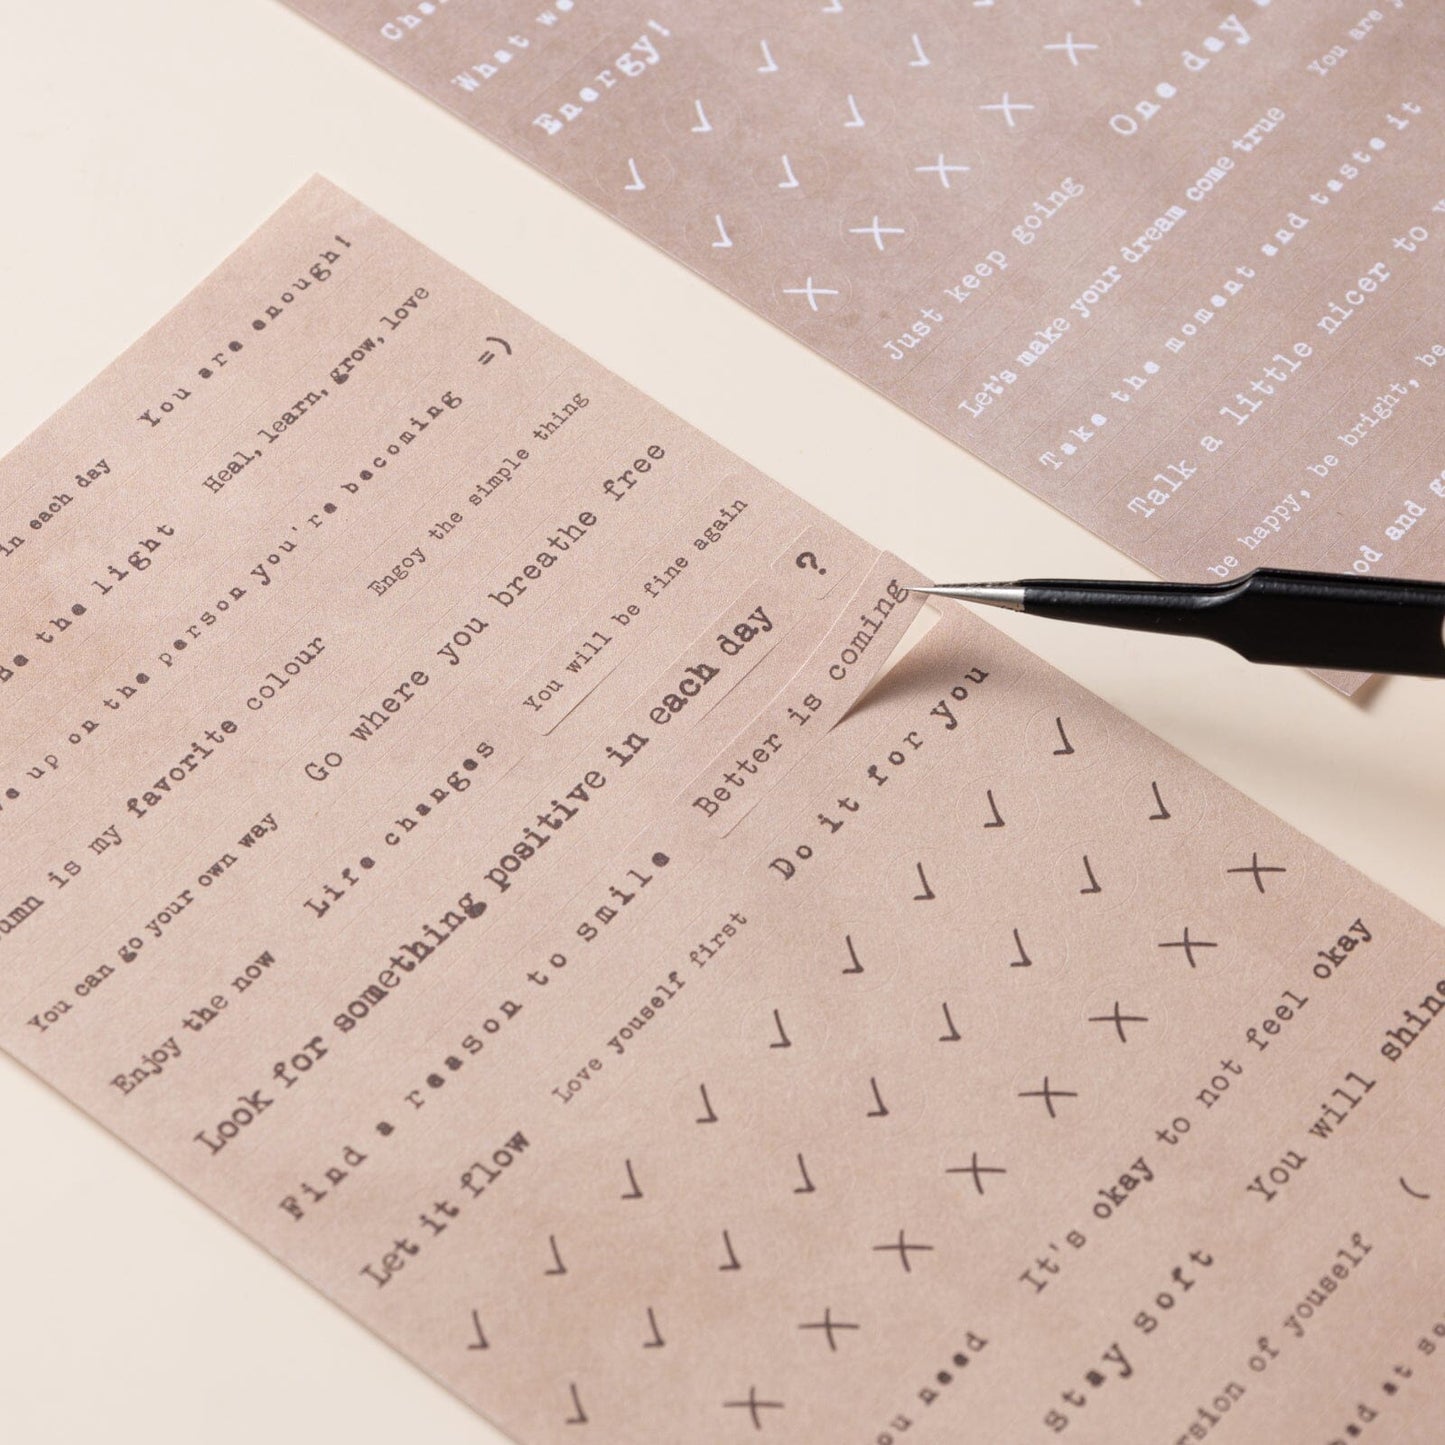 You are enough!
in each day
Heal, learn, grow, love
Be the light
=)
up on the person you're becoming
Engoy the simple thing
is my favorite colour
Go where you breathe free
You can go your own way
Life changes
You will be fine again
?
Enjoy the now
Look for something positive in each day
Better is coming
Find a reason to smile
Do it for you
Love youself first
Let it flow
It's okay to not feel okay
You will shine
(
need
Stay soft
of youself
at
What we
Energy!
One day
You are
Just keep going
Let's make your dream come true
Take the moment and taste it
Talk a little nicer to
be happy, be bright, be
and